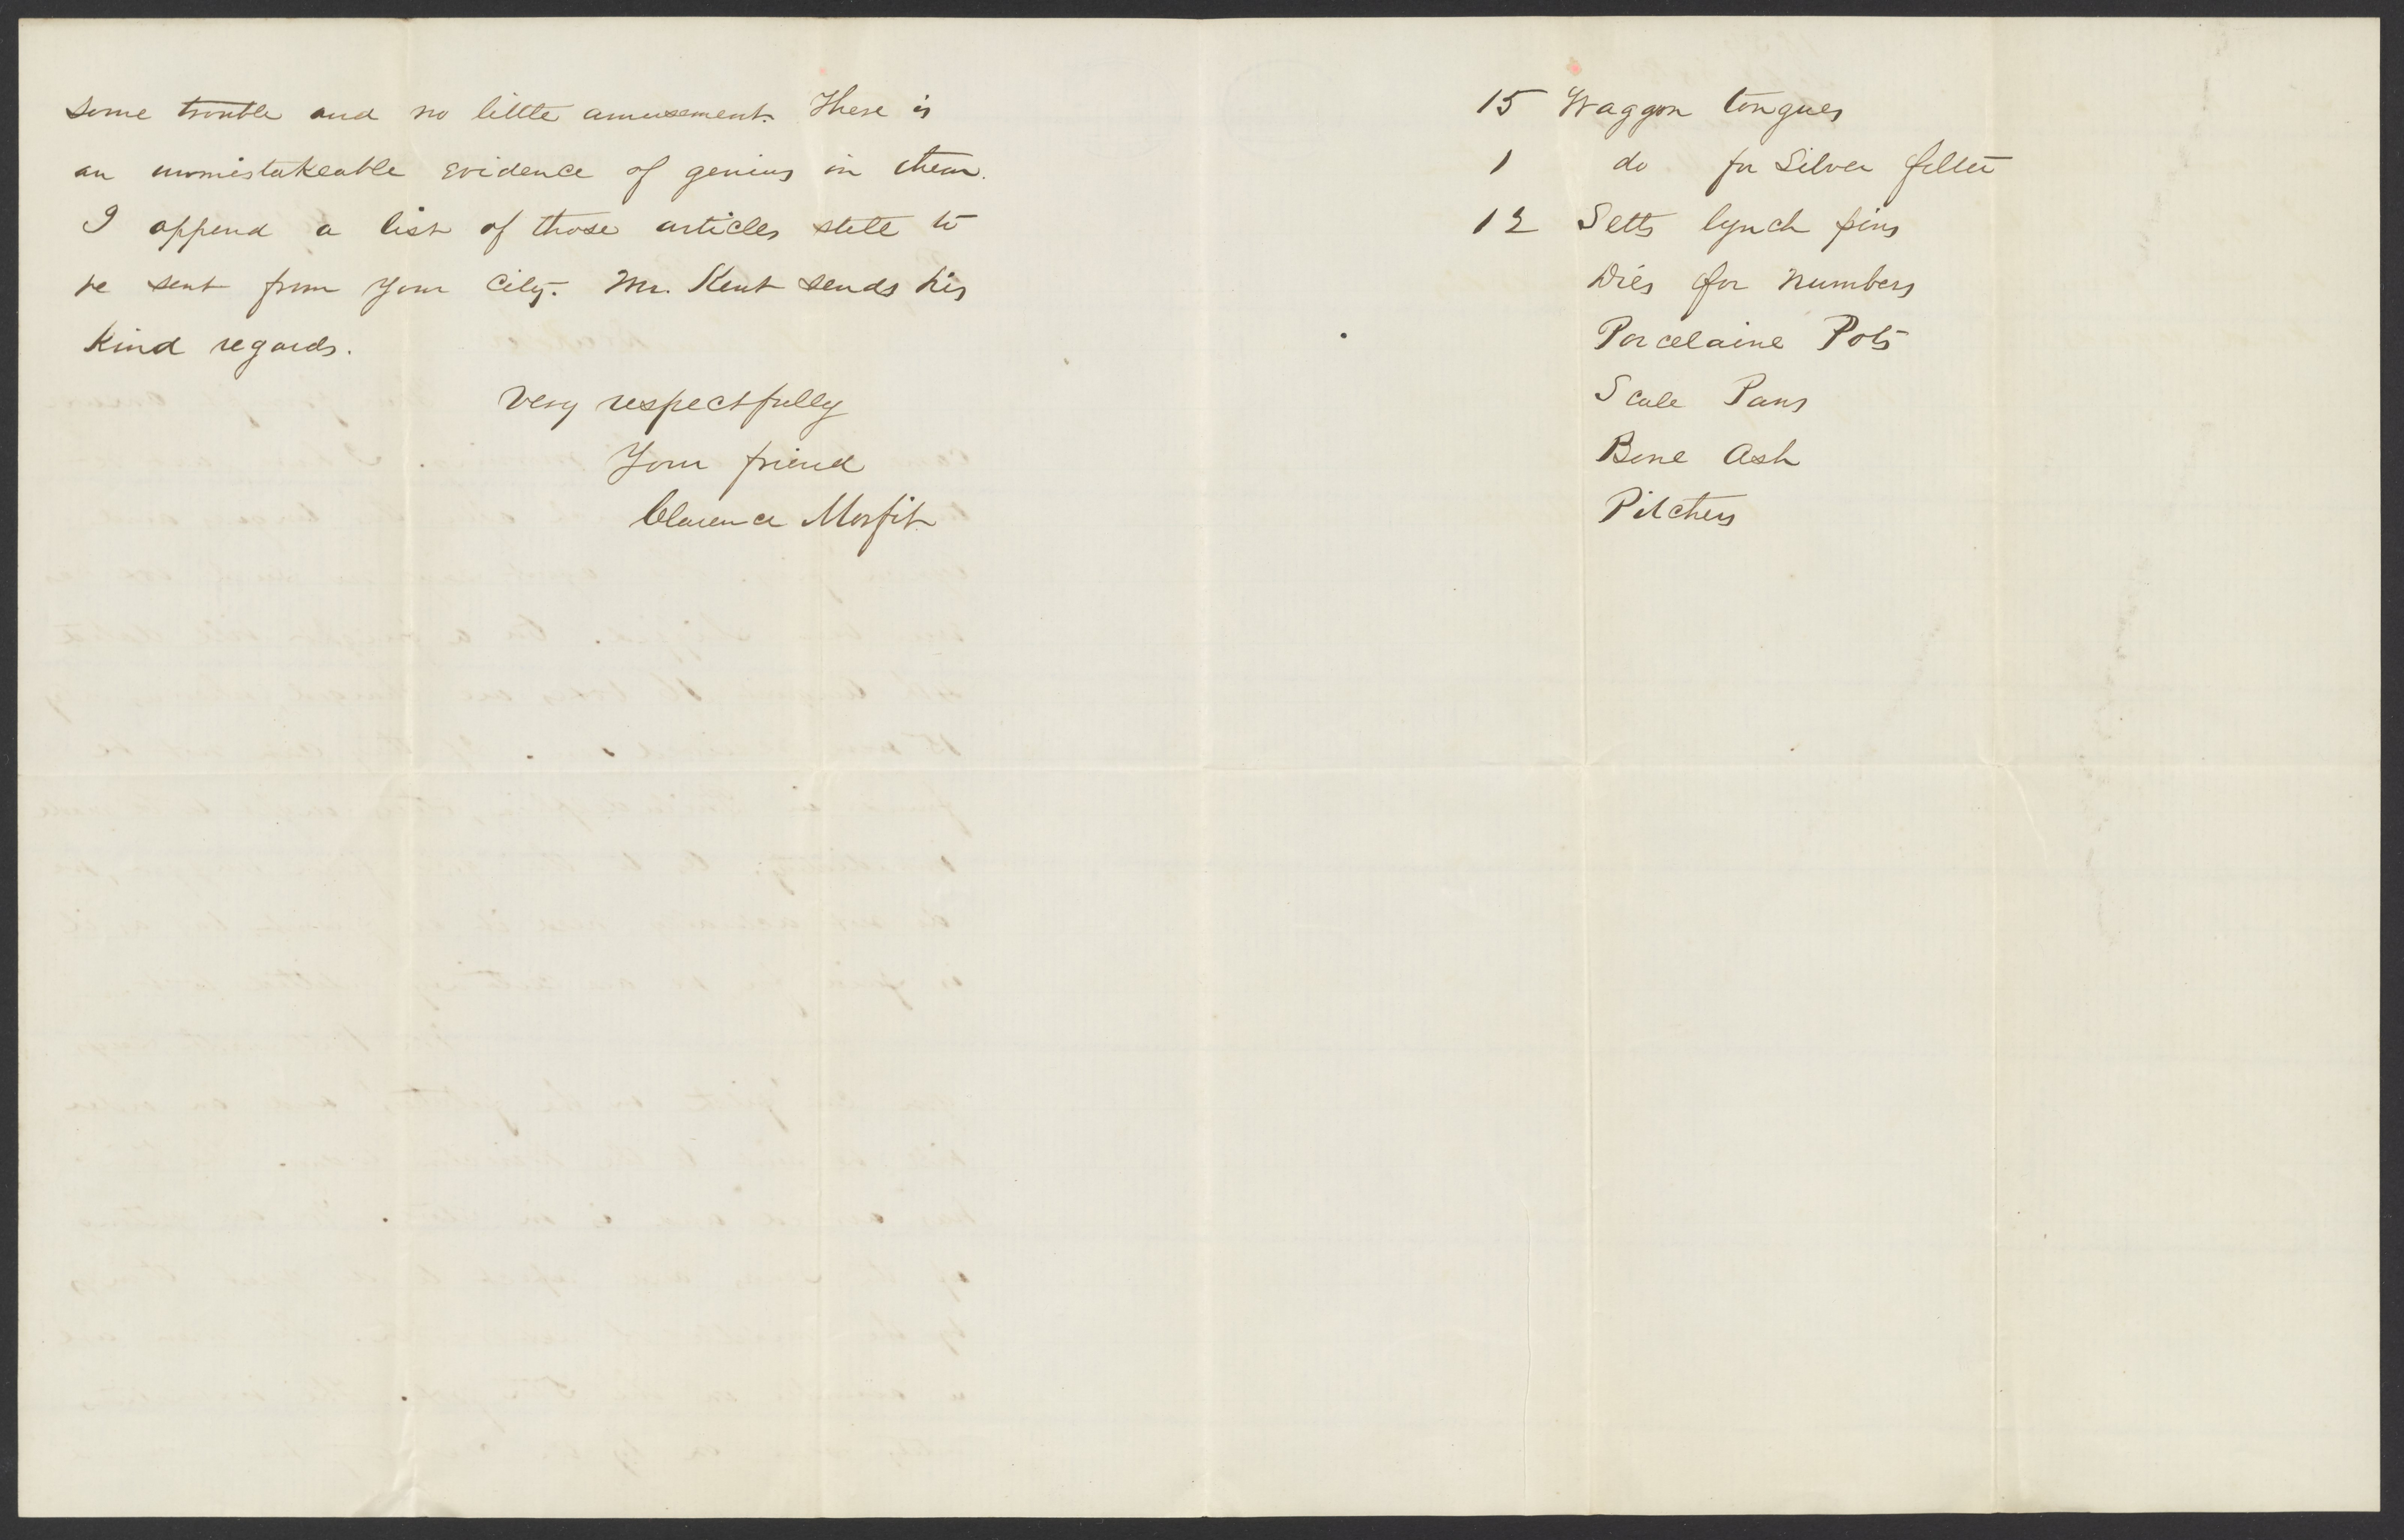 some trouble and no little amusement. There is
an unmistakeable evidence of genius in them.
I append a list of those articles still to
be sent from your city. Mr. Kent sends his
kind regards.
Very respectfully
Your friend
Clarence Morfit
15 Waggon tongues
1 do for Silver filter
12 Setts lynch pins
Dies for numbers
Porcelaine Pots
Scale Pans
Bone Ash
Pitchers